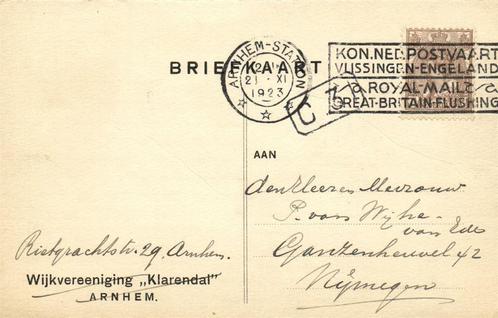 BRIEFKAART
ARNHEM-STATION
21 XI
1923
KON.NED.POSTVAART
VLISSINGEN-ENGELAND
ROYAL-MAIL
GREAT-BRITAIN-FLUSHING
AAN
den Heer en Mevrouw
P. van Wijhe-
van Ede
Ganzenheuvel 42
Nijmegen
Rietgrachtstr. 29, Arnhem.
Wijkvereeniging „Klarendal"
ARNHEM.